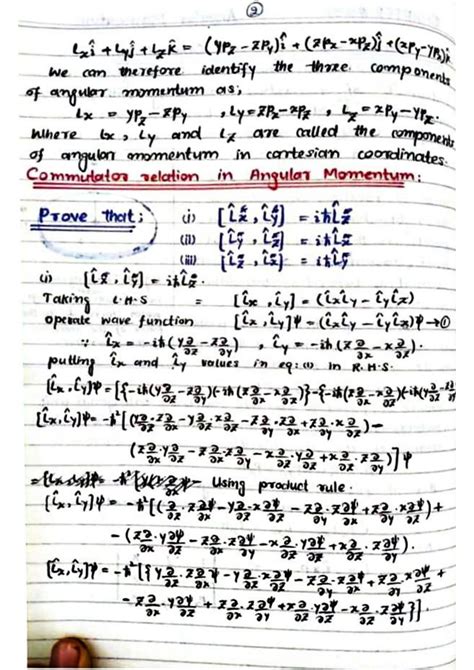 ②
Lxî + Lyĵ + Lzk̂ = (yPz - zPy)î + (zPx - xPz)ĵ + (xPy - yPx)k̂
We can therefore identify the three components
of angular momentum as;
Lx = yPz - zPy , Ly = zPx - xPz , Lz = xPy - yPx.
Where Lx, Ly and Lz are called the components
of angular momentum in cartesian coordinates.
Commutator relation in Angular Momentum:
Prove that; (i) [L̂x, L̂y] = iħL̂z
(ii) [L̂y, L̂z] = iħL̂x
(iii) [L̂z, L̂x] = iħL̂y
(i) [L̂x, L̂y] = iħL̂z
Taking L.H.S = [L̂x, L̂y] = (L̂xL̂y - L̂yL̂x)
operate wave function [L̂x, L̂y]ψ = (L̂xL̂y - L̂yL̂x)ψ → ①
∵ L̂x = -iħ(y∂/∂z - z∂/∂y) , L̂y = -iħ(z∂/∂x - x∂/∂z).
putting L̂x and L̂y values in eq:(1) in R.H.S.
[L̂x, L̂y]ψ = [{-iħ(y∂/∂z - z∂/∂y)(-iħ(z∂/∂x - x∂/∂z)} - {-iħ(z∂/∂x - x∂/∂z)(-iħ(y∂/∂z - z∂/∂y
[L̂x, L̂y]ψ = -ħ²[(y∂/∂z . z∂/∂x - y∂/∂z . x∂/∂z - z∂/∂y . z∂/∂x + z∂/∂y . x∂/∂z) -
(z∂/∂x . y∂/∂z - z∂/∂x . z∂/∂y - x∂/∂z . y∂/∂z + x∂/∂z . z∂/∂y)]ψ
Using product rule.
[L̂x, L̂y]ψ = -ħ²[(y∂/∂z . z∂ψ/∂x - y∂/∂z . x∂ψ/∂z - z∂/∂y . z∂ψ/∂x + z∂/∂y . x∂ψ/∂z) +
- (z∂/∂x . y∂ψ/∂z - z∂/∂x . z∂ψ/∂y - x∂/∂z . y∂ψ/∂z + x∂/∂z . z∂ψ/∂y).
[L̂x, L̂y]ψ = -ħ²[{y∂/∂z . z∂ψ/∂x - y∂/∂z . x∂ψ/∂z - z∂/∂y . z∂ψ/∂x + z∂/∂y . x∂ψ/∂z +
- z∂/∂x . y∂ψ/∂z + z∂/∂x . z∂ψ/∂y + x∂/∂z . y∂ψ/∂z - x∂/∂z . z∂ψ/∂y}].